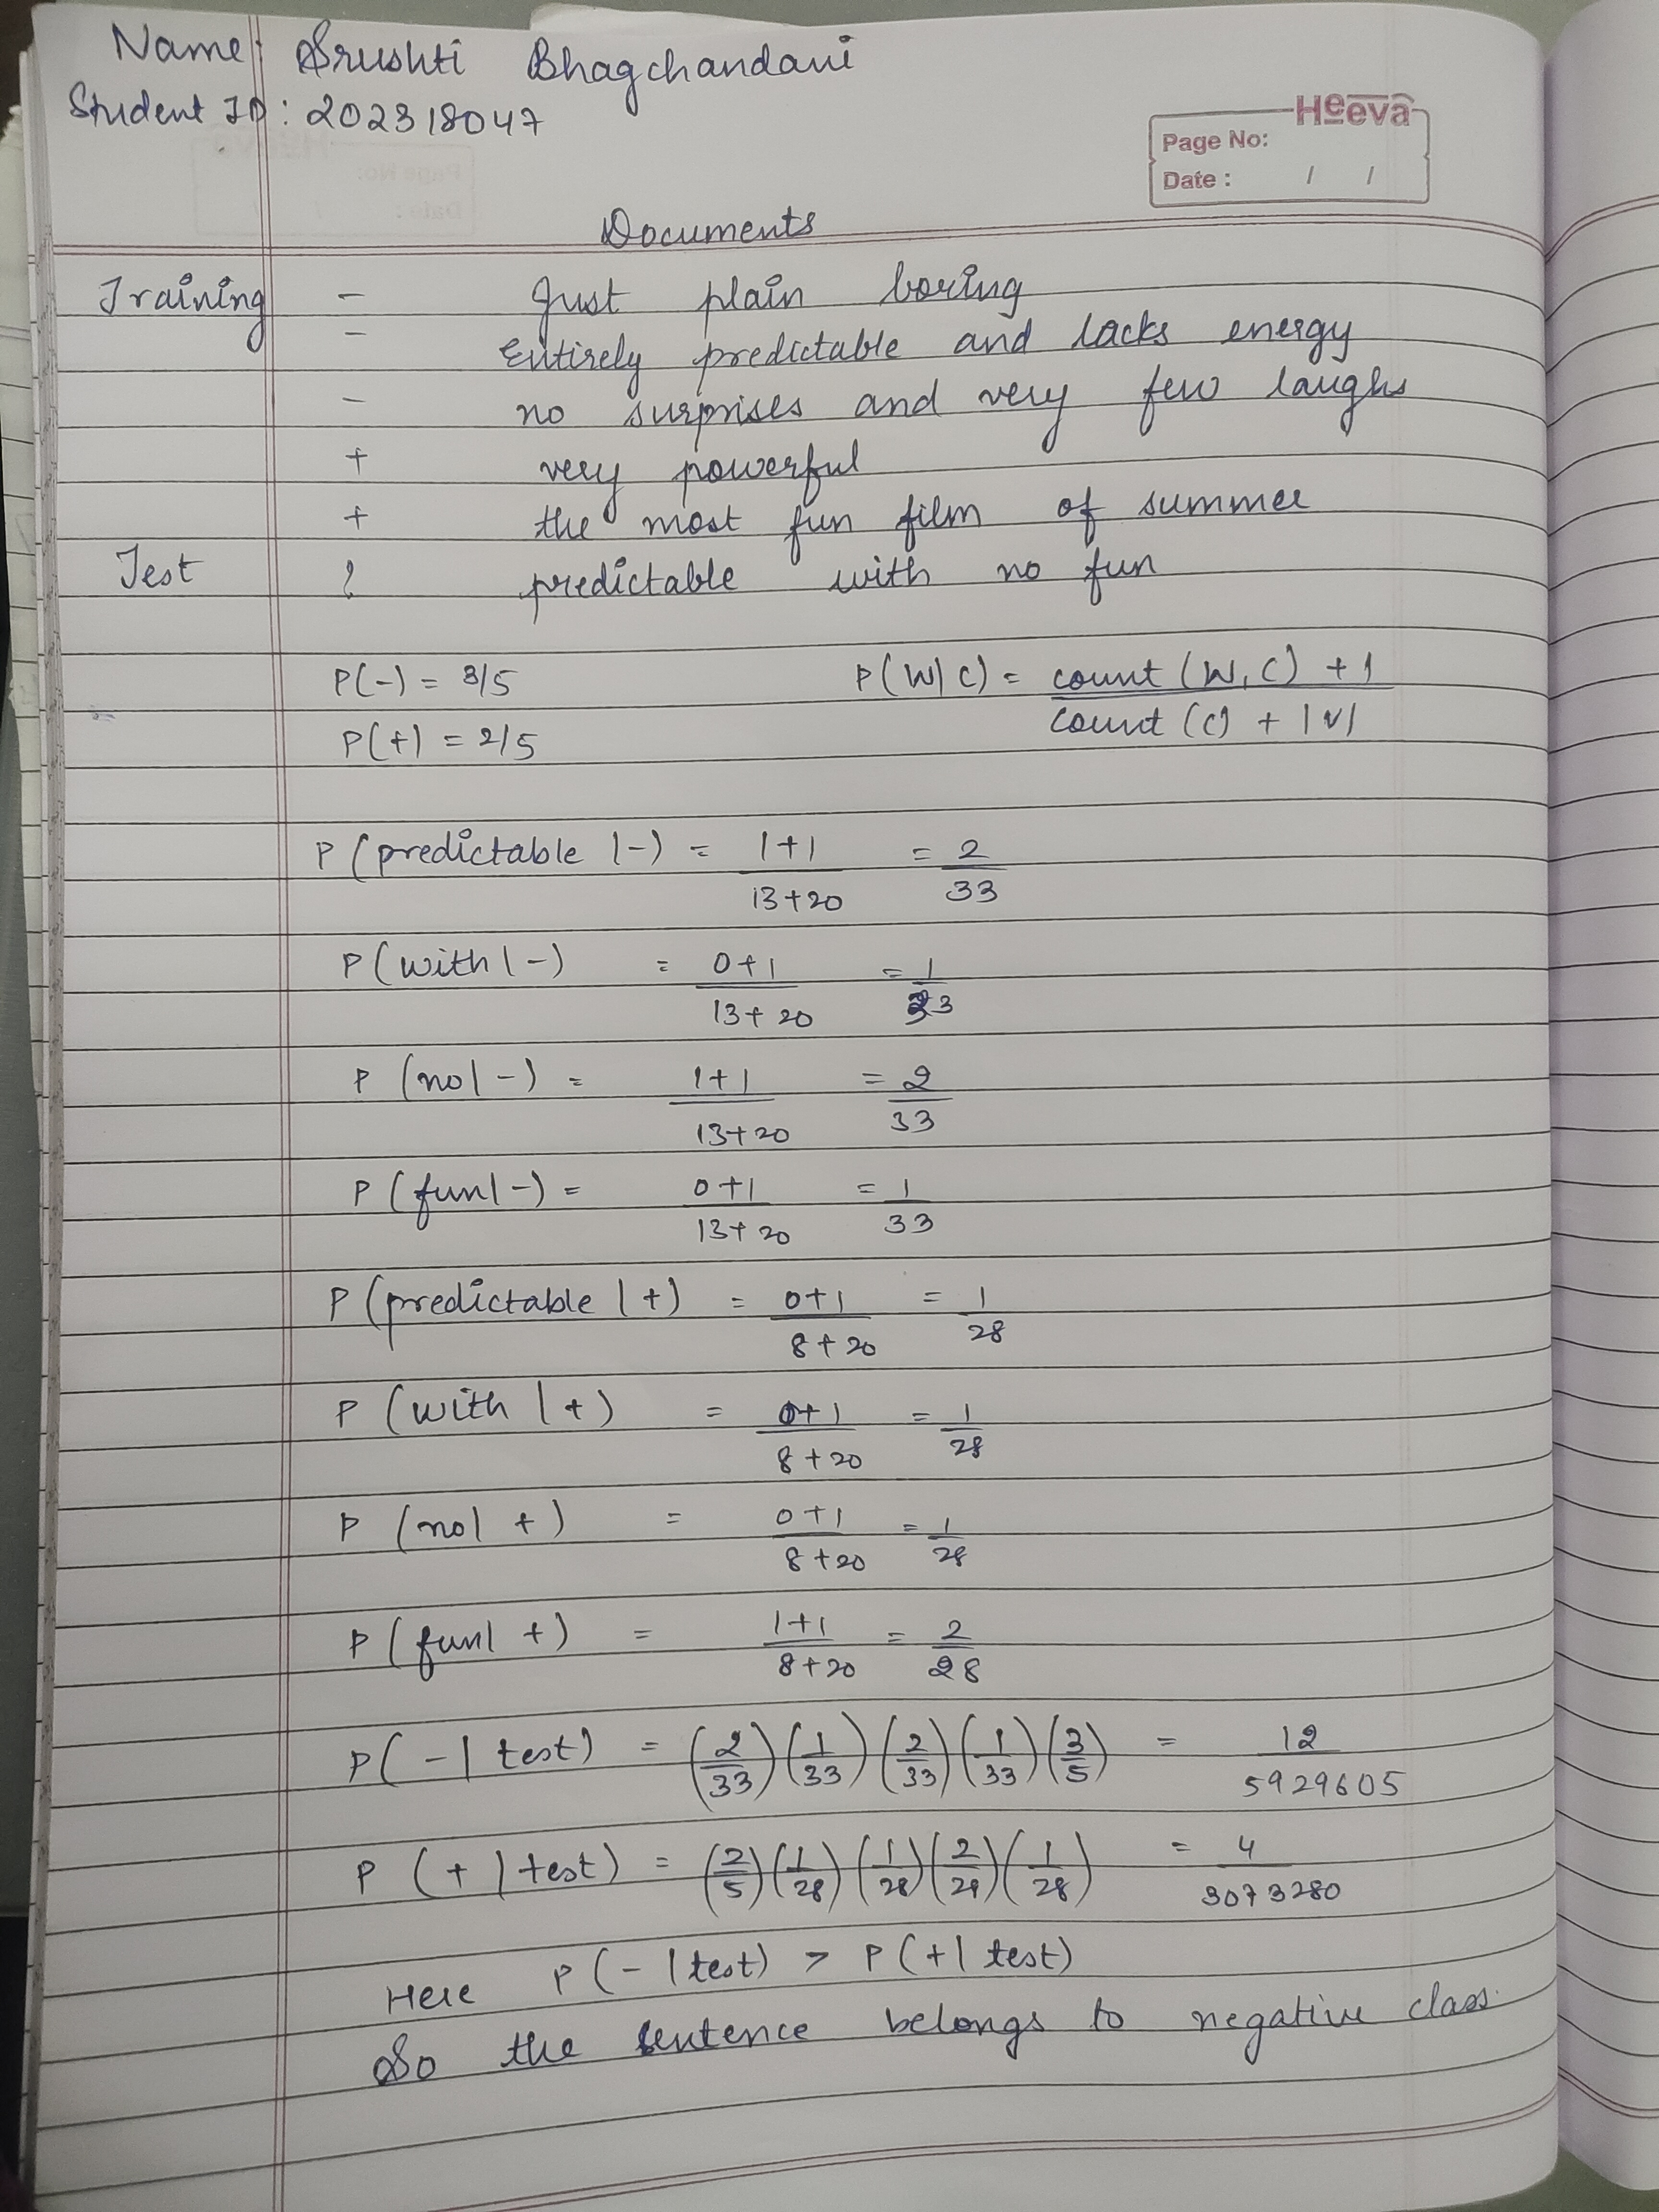 Name: Srushti Bhagchandani
Student ID: 202318047
Heeva
Page No:
Date : / /
Documents
Training - Just plain boring
- Entirely predictable and lacks energy
- no surprises and very few laughs
+ very powerful
+ the most fun film of summer
Test ? predictable with no fun
P(-) = 3/5 P(W|C) = count (W,C) + 1
P(+) = 2/5 count (C) + |V|
P (predictable |-) = 1+1 = 2
13+20 33
P(with|-) = 0+1 = 1
13+20 33
P (no|-) = 1+1 = 2
13+20 33
P (fun|-) = 0+1 = 1
13+20 33
P (predictable |+) = 0+1 = 1
8+20 28
P (with |+) = 0+1 = 1
8+20 28
P (no| +) = 0+1 = 1
8+20 28
P (fun| +) = 1+1 = 2
8+20 28
P( - | test) = (2/33) (1/33) (2/33) (1/33) (3/5) = 12
5929605
P (+ | test) = (2/5) (1/28) (1/28) (2/28) (1/28) = 4
3073280
Here P(- | test) > P(+| test)
So the sentence belongs to negative class.